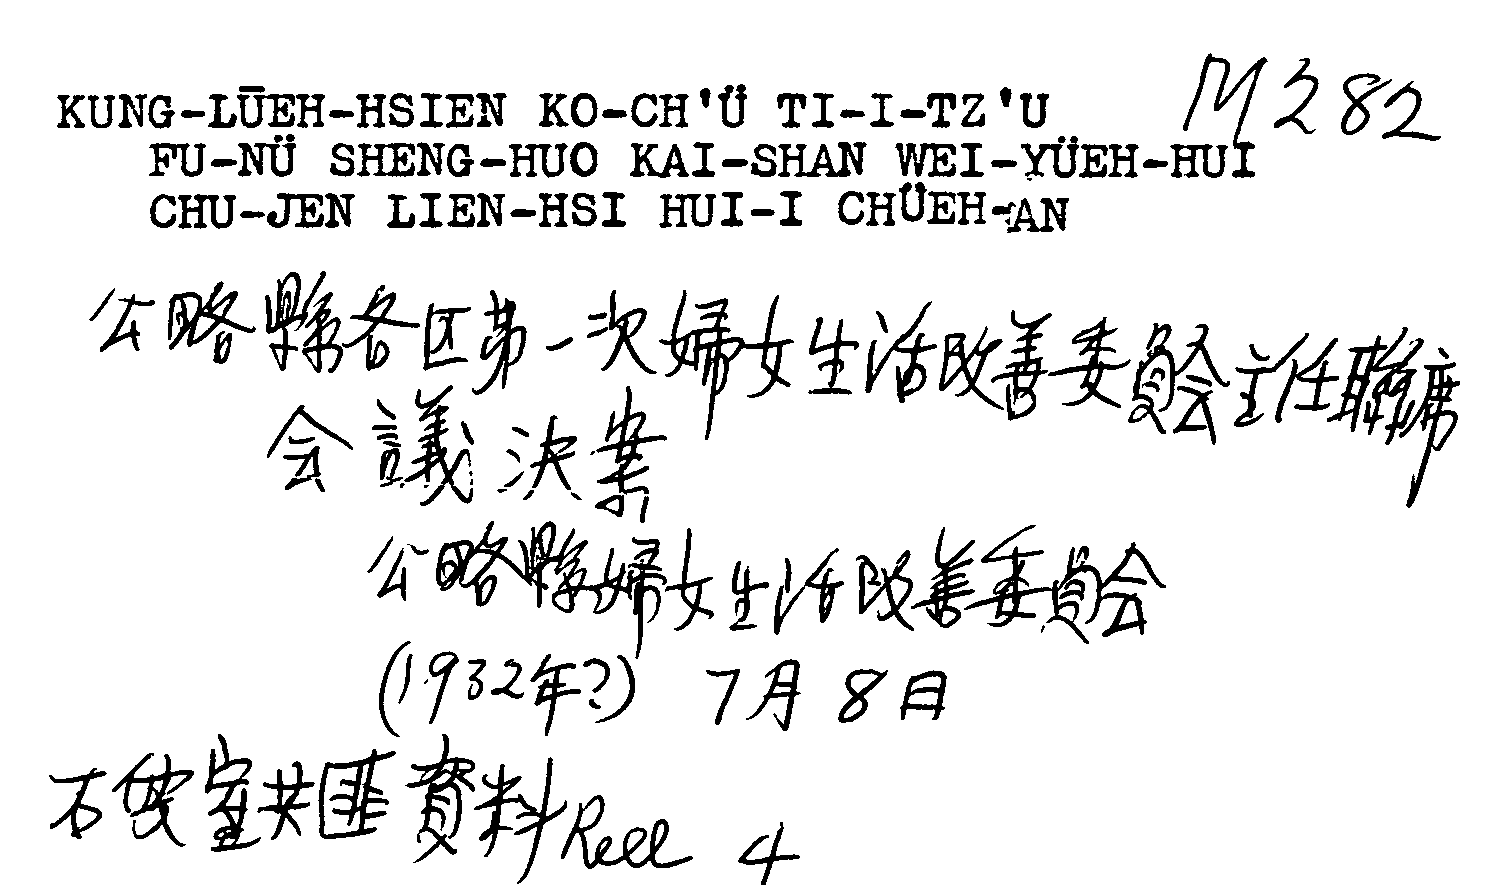 KUNG-LÜEH-HSIEN KO-CH'Ü TI-I-TZ'U M282
FU-NÜ SHENG-HUO KAI-SHAN WEI-YÜEH-HUI
CHU-JEN LIEN-HSI HUI-I CHÜEH-AN
公略縣各区第一次婦女生活改善委員会主任聯席
会議決案
公略縣婦女生活改善委員会
(1932年?) 7月8日
石叟室共匪資料 Reel 4